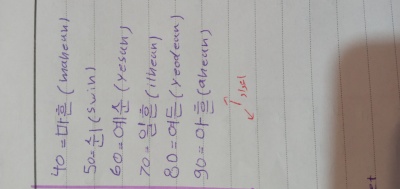 40 = 마흔 (maheun)
50 = 쉰 (swin)
60 = 예순 (yesun)
70 = 일흔 (ilheun)
80 = 여든 (yeodeun)
90 = 아흔 (aheun)